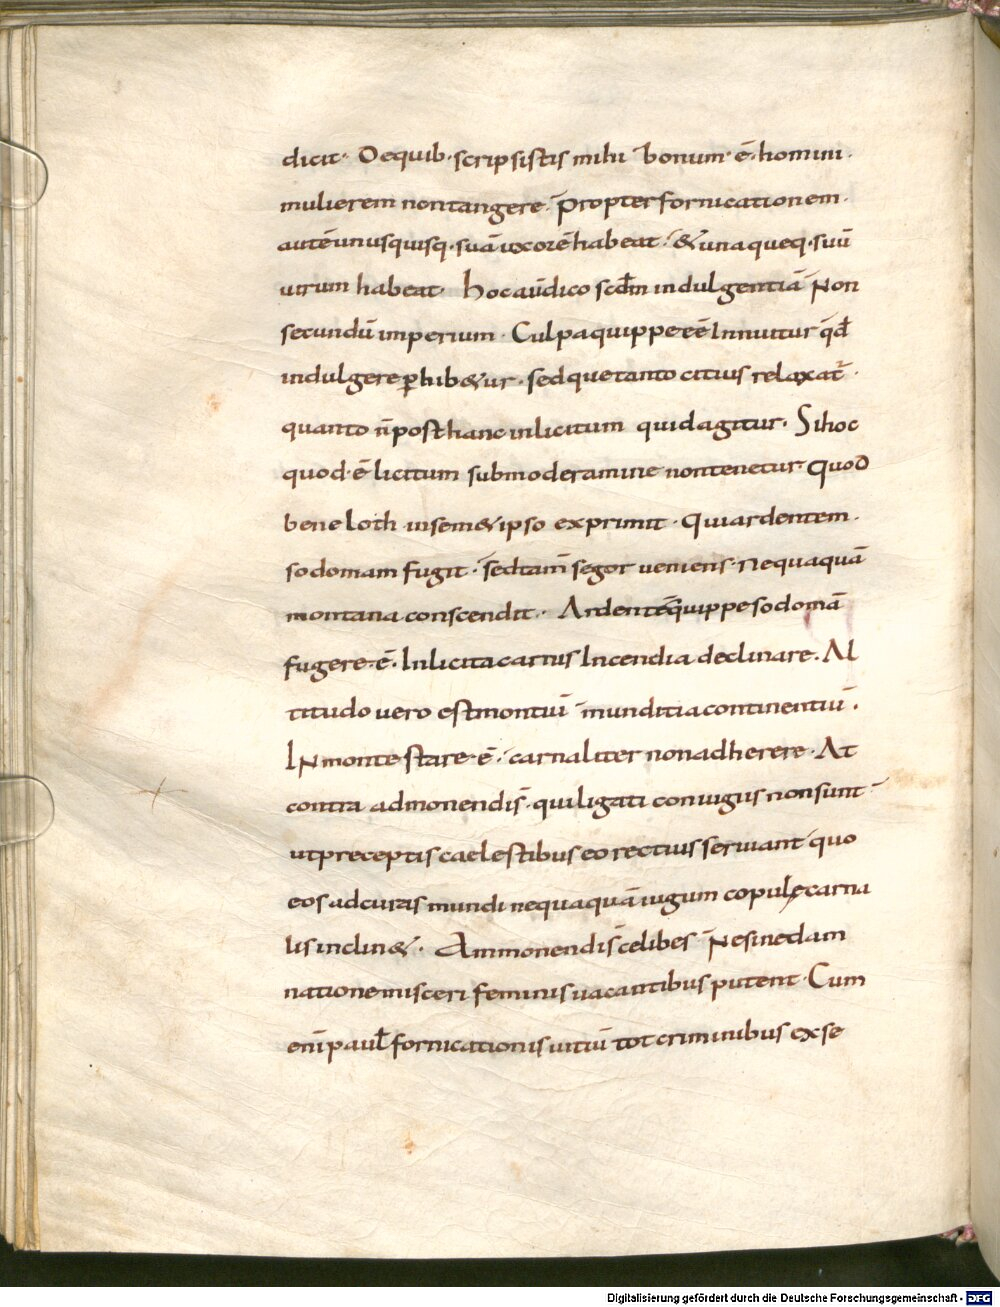 dicit· Dequib·scripsistis mihi bonum·ē·homini·
mulierem nontangere· Propter fornicationem·
autē unusquisq·suā uxorē habeat·& unaqueq·suū
uirum habeat· hoc aūdico scdm̄ indulgentiā Non
secundū imperium· Culpa quippe eē Innuitur qd̄
indulgere ꝑhib&ur·sed que tanto citius relaxat̄·
quanto n̄ posthanc inlicitum quid agitur· Si hoc
quod·ē licitum submoderamine nontenetur Quod
bene loth insem&ipso exprimit· Qui ardentem·
sodomam fugit· sedtam̄ segor ueniens·nequaquā
montana conscendit· Ardentē quippe sodomā
fugere·ē· Inlicita carnis Incendia declinare· Al
titudo uero est montiū munditia continentiū·
IN monte stare·ē· carnaliter non adherere· At
contra admonendis̄·qui ligati coniugiis non sunt
ut preceptis caelestibus eo rectius seruiant quo
eos ad curas mundi nequaquā iugum copulę carna
lis inclin&· Ammonendis̄ celibes Ne sine dam
natione misceri feminis uacantibus putent· Cum
eni᷒ paul̄ fornicationis uitiū tot criminibus exse
Digitalisierung gefördert durch die Deutsche Forschungsgemeinschaft - DFG